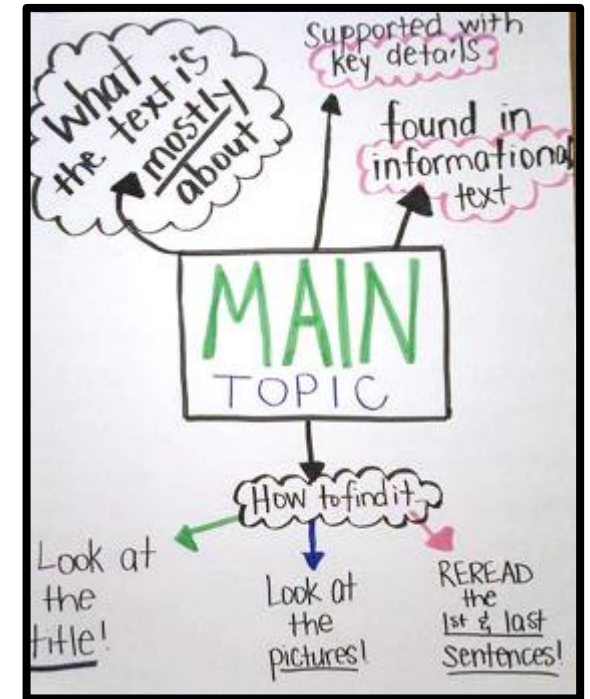 What
the text is
mostly
about
Supported with
key details
found in
informational
text
MAIN
TOPIC
How to find it
Look at
the
title!
Look at
the
pictures!
REREAD
the
1st & last
sentences!